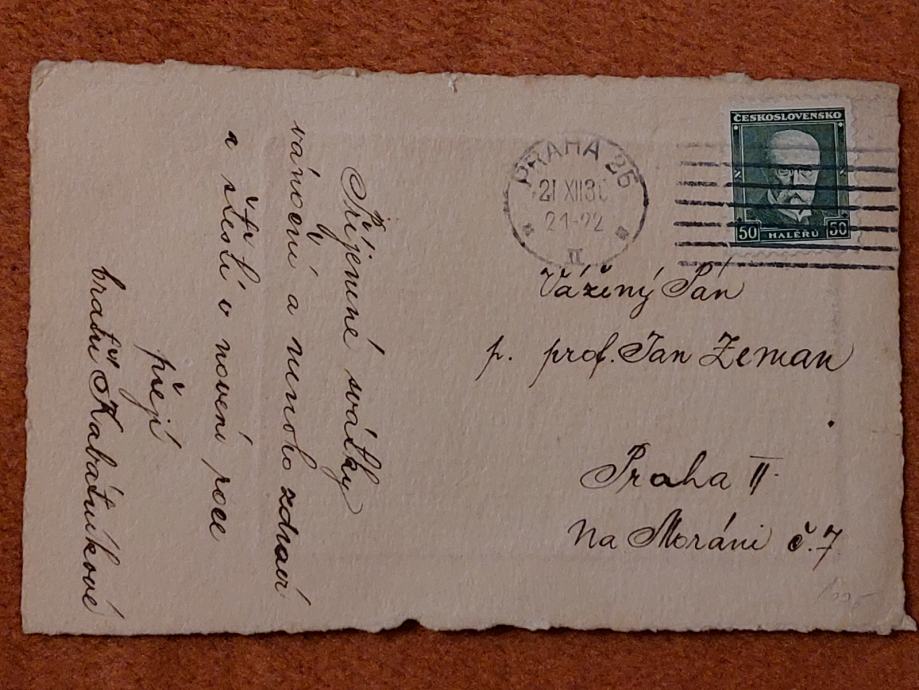 Příjemné svátky
vánoční a mnoho zdraví
a štěstí v novém roce
přejí
bratři Kabátníkové
PRAHA 26
21 XII 3
21-22
II
ČESKOSLOVENSKO
50 HALÉŘŮ 50
Vážený Pán
p. prof. Jan Zeman
Praha II.
Na Moráni č. 7